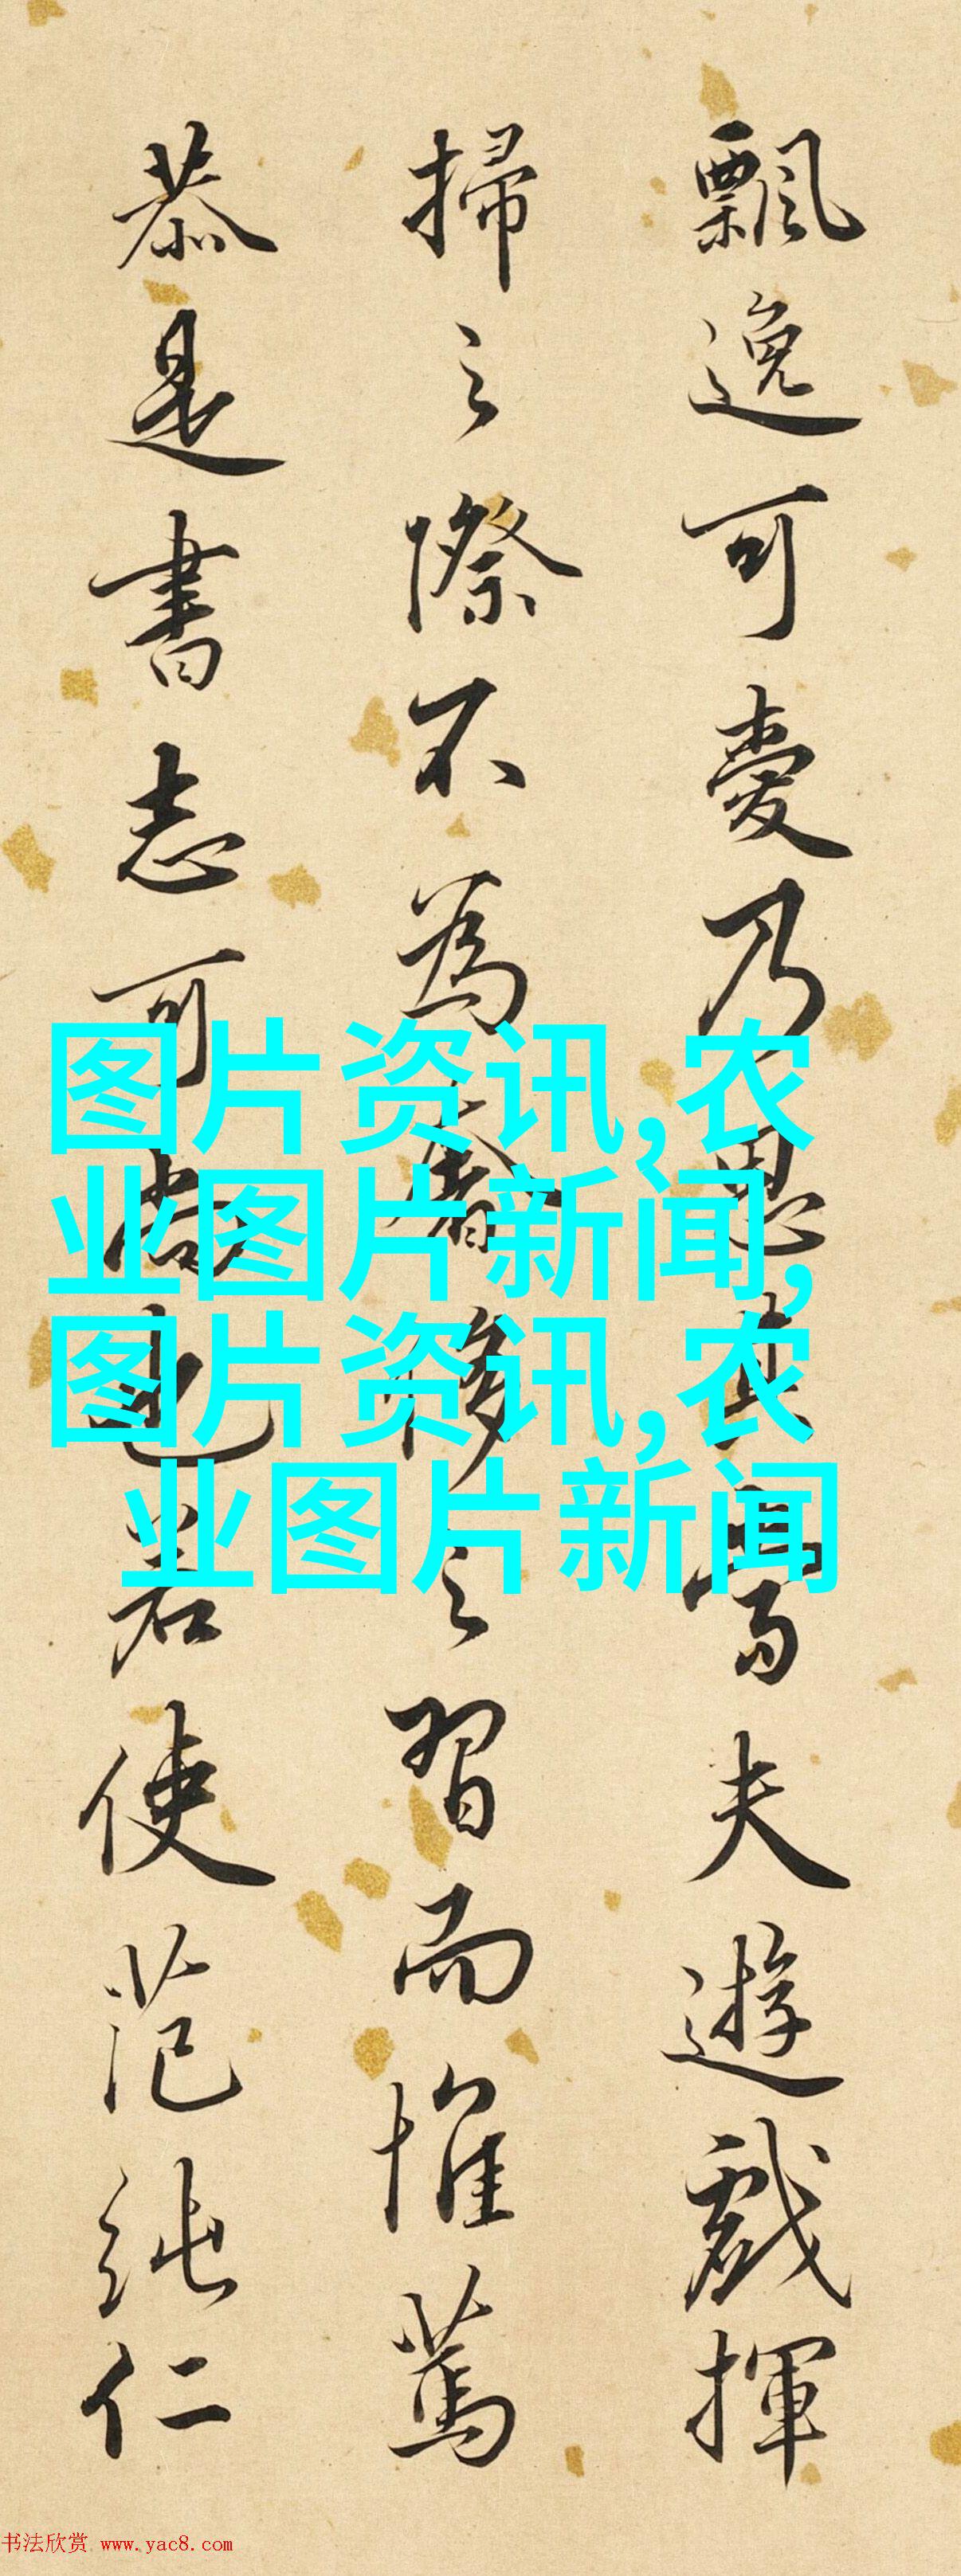 飄逸可愛乃思其寓夫遊戲揮
掃之際不為奢侈之習而惟篤
恭是書志可尚也若使范純仁
图片资讯,农
业图片新闻,
图片资讯,农
业图片新闻
书法欣赏 www.yac8.com